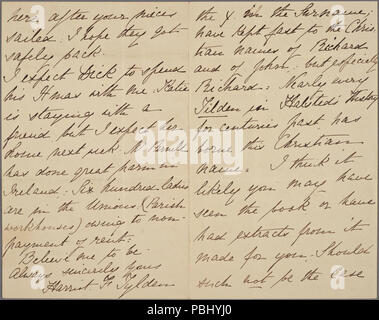 her, after your nieces
sailed. I hope they got
safely back.
I expect Dick to spend
his Xmas with me. Katie
is staying with a
friend but I expect her
home next week. Mr Parnell
has done great harm in
Ireland: Six hundred ladies
are in the Unions (Parish
workhouses) owing to non-
payment of rent:
Believe me to be
Always sincerely yours
Harriet F Tylden
the Y in the Surname;
have kept fast to the Chris
tian names of Richard
and of John: but specially
Richard: Nearly every
Tilden in Halsted's History
for centuries past has
borne this Christian
name. I think it
likely you may have
seen the book or have
had extracts from it
made for you. Should
such not be the case
alamy
Image ID: PBHYJ0
www.alamy.com